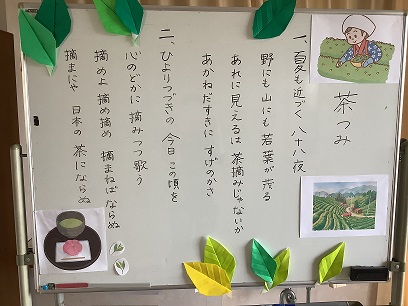 茶つみ
一、夏も近づく 八十八夜
野にも山にも 若葉が茂る
あれに見えるは 茶摘みじゃないか
あかねだすきに すげのかさ
二、ひよりつづきの 今日この頃を
心のどかに 摘みつつ歌う
摘めよ 摘め摘め 摘まねばならぬ
摘まにゃ 日本の 茶にならぬ